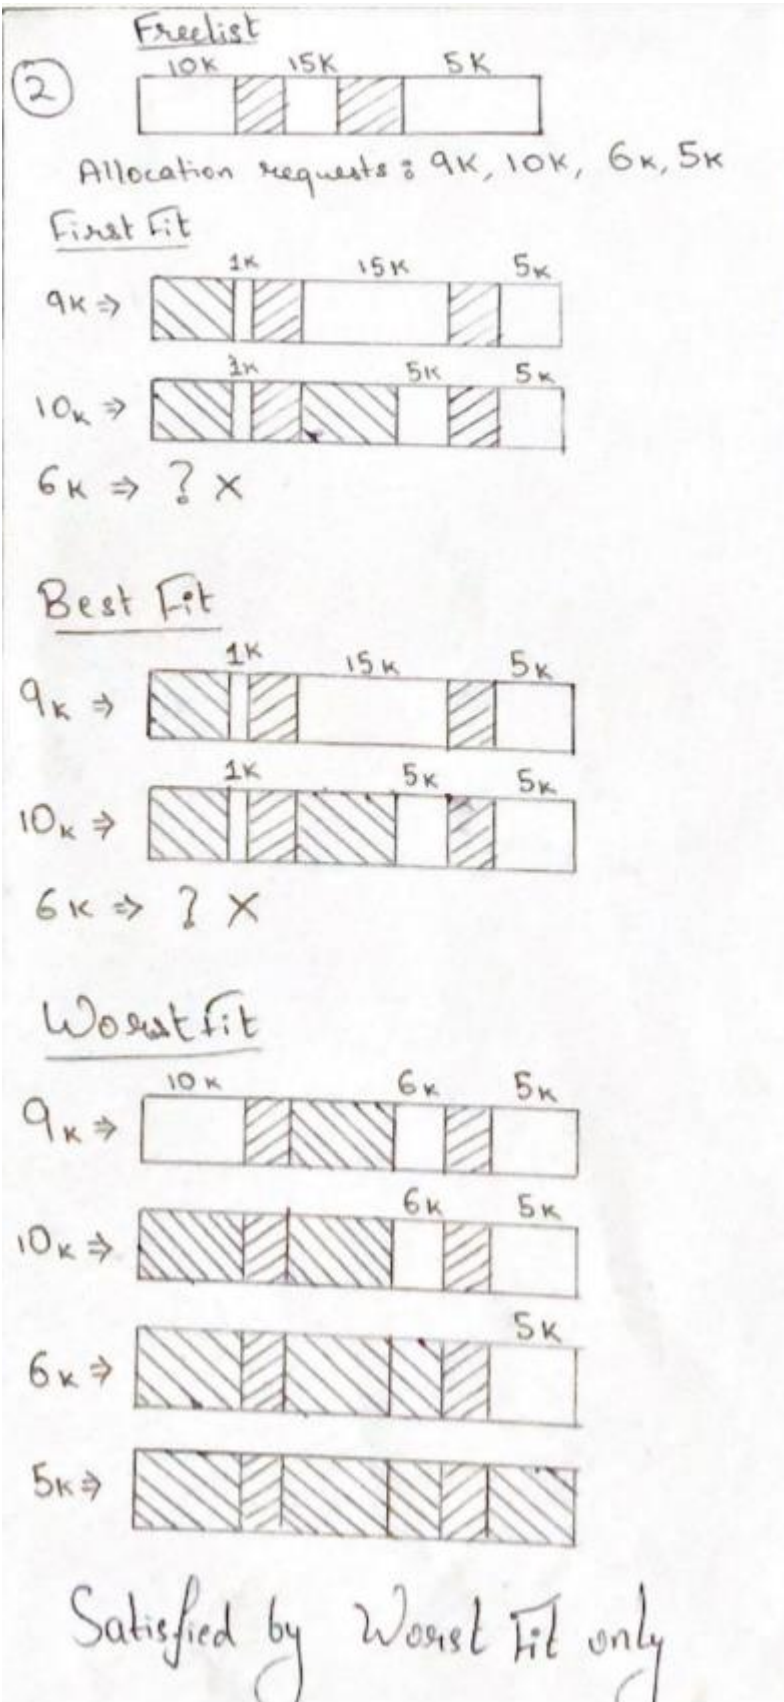 Freelist
2
10K 15K 5K
Allocation requests : 9K, 10K, 6K, 5K
First Fit
1K 15K 5K
9K ⇒
1K 5K 5K
10K ⇒
6K ⇒ ? ×
Best Fit
1K 15K 5K
9K ⇒
1K 5K 5K
10K ⇒
6K ⇒ ? ×
Worst Fit
10K 6K 5K
9K ⇒
6K 5K
10K ⇒
5K
6K ⇒
5K ⇒
Satisfied by Worst Fit only